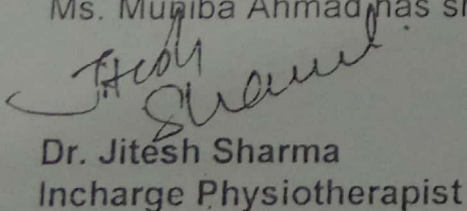 Ms. Muniba Ahmad has
Sharma
Dr. Jitesh Sharma
Incharge Physiotherapist